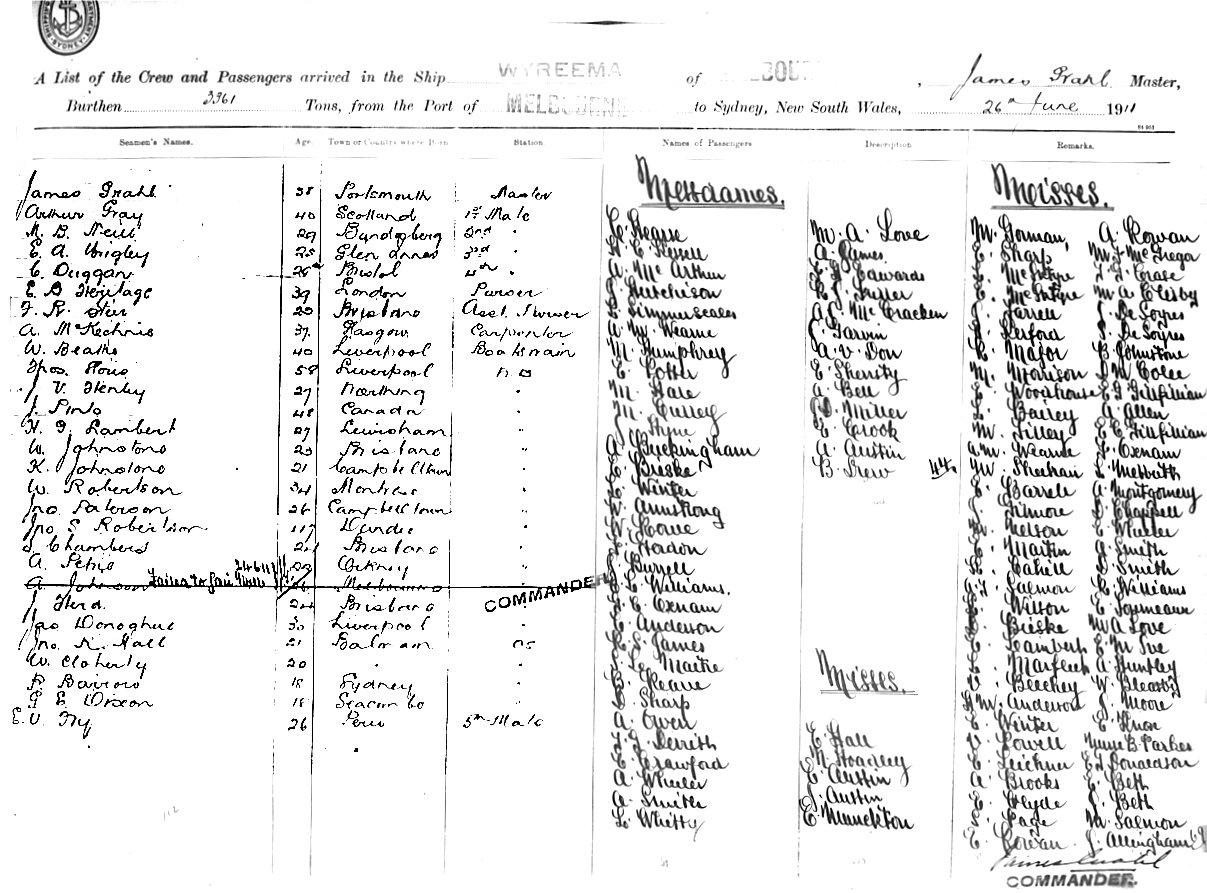 SYDNEY
A List of the Crew and Passengers arrived in the Ship WYREEMA of , James Grahl Master,
Burthen 3361 Tons, from the Port of MELBOURNE to Sydney, New South Wales, 26th June 1911
Seamen's Names. Age. Town or Country where Born Station.
James Grahl 38 Portsmouth Master
Arthur Gray 40 Scotland 1st Mate
N. B. Neill 29 Bundaberg 2nd "
E. A. Wrigley 25 Glen Innes 3rd "
C. Duggan Bristol 4th "
E. G Heritage 39 London Purser
F. R. 23 Brisbane Asst. Purser
A. McKechnie 37 Glasgow Carpenter
W. Beattie 40 Liverpool Boatswain
Thos. 58 Liverpool
J. V. Henley 27 Worthing "
J. Pinto 48 Canada "
H. G. Lambert 27 Lewisham "
W. Johnstone 23 Brisbane "
K. Johnstone 21 Campbelltown "
W. Robertson 34 Montrose "
Jno. Paterson 26 Campbelltown "
Jno. S Robertson Dundee "
S Chambers 24 Brisbane "
A. Petrie 22 Orkney "
A. Johnson Failed to Join Melbourne
COMMANDER
J Herd. 24 Brisbane
Jas Donoghue 30 Liverpool
Jno. R. Hall 21 Balmain OS
W. Cloherty 20 "
P. Barrow 18 Sydney "
G E Dixon 18 Seacombe "
E. V. Fry 26 Peru 5th Mate
Names of Passengers
Mesdames.
C. Hearse
H. C. Kessell
A. McArthur
J. Hutchison
A. M. Wearne
M. Humphrey
E. Cotter
M. Hare
M. Curley
J. Hyne
A Buckingham
C. Bieske
L. Winter
W Armstrong
W. Howe
E. Gordon
J. Burrell
E. Williams.
J. E. Oxnam
E. Anderson
E. S. James
L. Le Maitre
B. Keane
D. Sharp
A. Owen
E. Crawford
A. Wheeler
A. Smith
L. Whitty
Description
M. A. Love
A. James.
E. H. Edwards
A. E. McCracken
E. Garvin
A. V. Don
E. Sherrity
A. Bell
D. Miller
E. Crook
A. Austin
B. Drew 44
Misses.
E. Hall
N. Hoadley
E. Austin
J. Austin
E. Munckton
Remarks.
Misses.
M. Gorman, A. Rowan
E. Sharp M. J. McGregor
E. McIntyre J. J. Crase
E. McIntyre M. A. Clezby
E. Farrell J. De Soyres
J. Rexford S. De Soyres
R. Major B. Johnstone
M. Morrison D. M. Coles
E. Woodhouse E. J. Gilfillian
L. Bailey A. Allen
M. Lilley E. C. Gilfillian
A. M. Wearne J. Oxnam
M. Sheehan L. Meredith
E. Barrell A. Montgomery
J. Finmore D. Chappell
W. Nelson E. Wheeler
E. Martin A. Smith
E. Cahill D. Smith
A. J. Salmon E. Williams
L. Wilson E. Journeaux
D. Bieske M. A Love
E. Lambert E. M. Ive
L. Marfleet A. Huntley
V. Beechey W. Bleasby
H. W. Anderson J. Moore
E. Winter E. Knox
V. Lowell Nurse B. Parkes
E. Leichner E. J. Donaldson
A. Brooks E. Beth
E. Clyde J. Beth
E. Page M. Salmon
E. Cowan J. Allingham
James Grahl
COMMANDER.